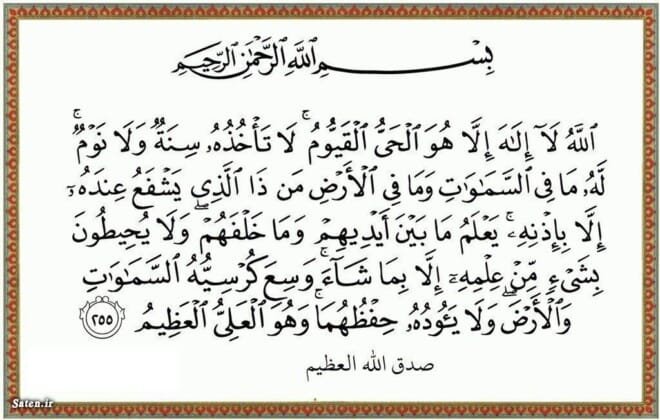 بِسْمِ ٱللَّهِ ٱلرَّحْمَٰنِ ٱلرَّحِيمِ
ٱللَّهُ لَآ إِلَٰهَ إِلَّا هُوَ ٱلْحَىُّ ٱلْقَيُّومُ ۚ لَا تَأْخُذُهُۥ سِنَةٌ وَلَا نَوْمٌ ۚ
لَّهُۥ مَا فِى ٱلسَّمَٰوَٰتِ وَمَا فِى ٱلْأَرْضِ ۗ مَن ذَا ٱلَّذِى يَشْفَعُ عِندَهُۥٓ
إِلَّا بِإِذْنِهِۦ ۚ يَعْلَمُ مَا بَيْنَ أَيْدِيهِمْ وَمَا خَلْفَهُمْ ۖ وَلَا يُحِيطُونَ
بِشَىْءٍ مِّنْ عِلْمِهِۦٓ إِلَّا بِمَا شَآءَ ۚ وَسِعَ كُرْسِيُّهُ ٱلسَّمَٰوَٰتِ
وَٱلْأَرْضَ ۖ وَلَا يَـُٔودُهُۥ حِفْظُهُمَا ۚ وَهُوَ ٱلْعَلِىُّ ٱلْعَظِيمُ ٢٥٥
صدق الله العظيم
Saten.ir